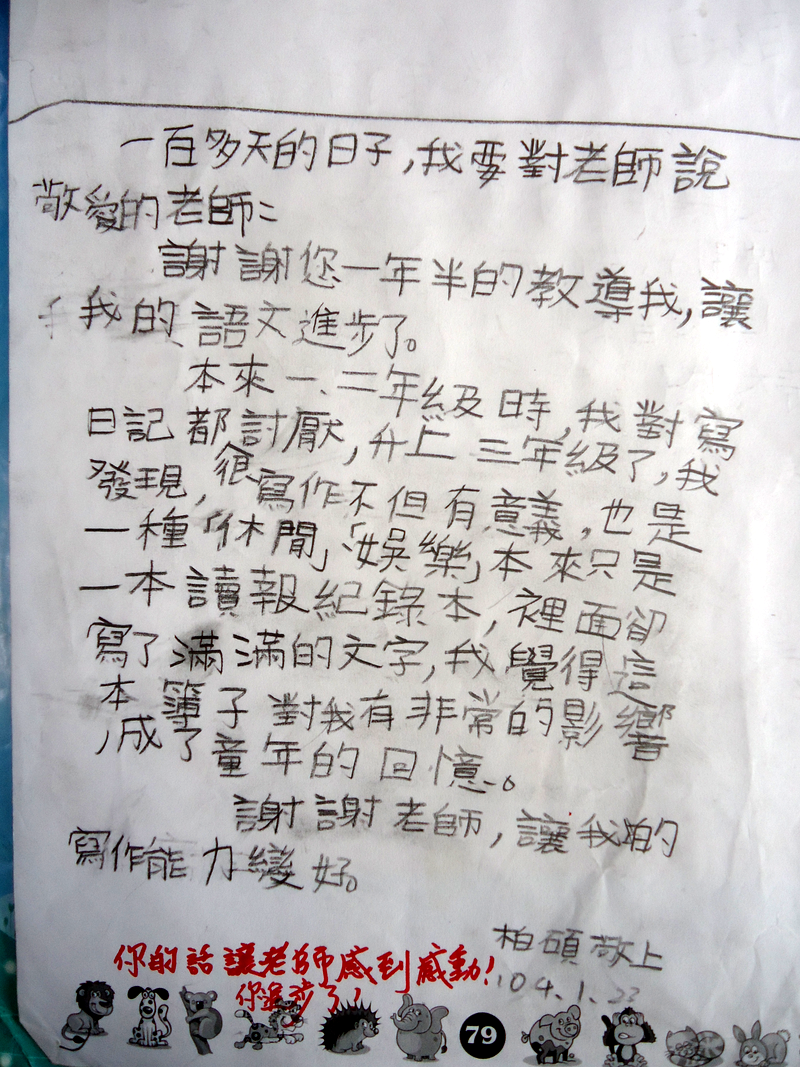 一百多天的日子,我要對老師說
敬愛的老師:
謝謝您一年半的教導我,讓
我的語文進步了。
本來一、二年級時,我對寫
日記都討厭,升上三年級了,我
發現,很寫作不但有意義,也是
一種「休閒」「娛樂」本來只是
一本讀報紀錄本,裡面卻
寫了滿滿的文字,我覺得這
本簿子對我有非常的影響
,成了童年的回憶。
謝謝老師,讓我的
寫作能力變好。
柏碩敬上
104.1.23
你的話讓老師感到感動!
你進步了!
79